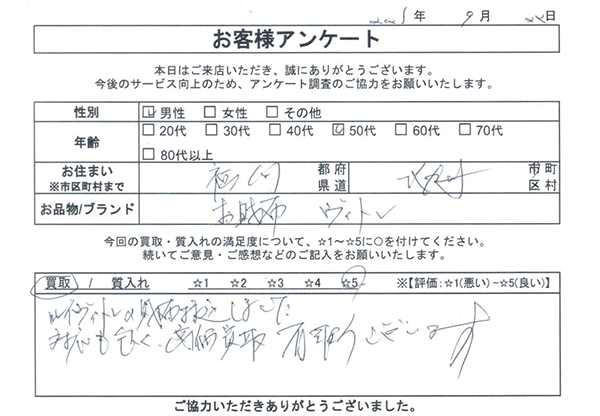 2025年 9月 日
お客様アンケート
本日はご来店いただき、誠にありがとうございます。
今後のサービス向上のため、アンケート調査のご協力をお願いいたします。
性別 ☑男性 □女性 □その他
年齢 □20代 □30代 □40代 ☑50代 □60代 □70代
□80代以上
お住まい ※市区町村まで 都府県道 市町区村
お品物/ブランド お財布 ヴィトン
今回の買取・質入れの満足度について、☆1～☆5に○を付けてください。
続いてご意見・ご感想などのご記入をお願いいたします。
買取 / 質入れ ☆1 ☆2 ☆3 ☆4 ☆5 ※【評価:☆1(悪い)-☆5(良い)】
ルイヴィトンの しました
高価買取 有難うございます
ご協力いただきありがとうございました。